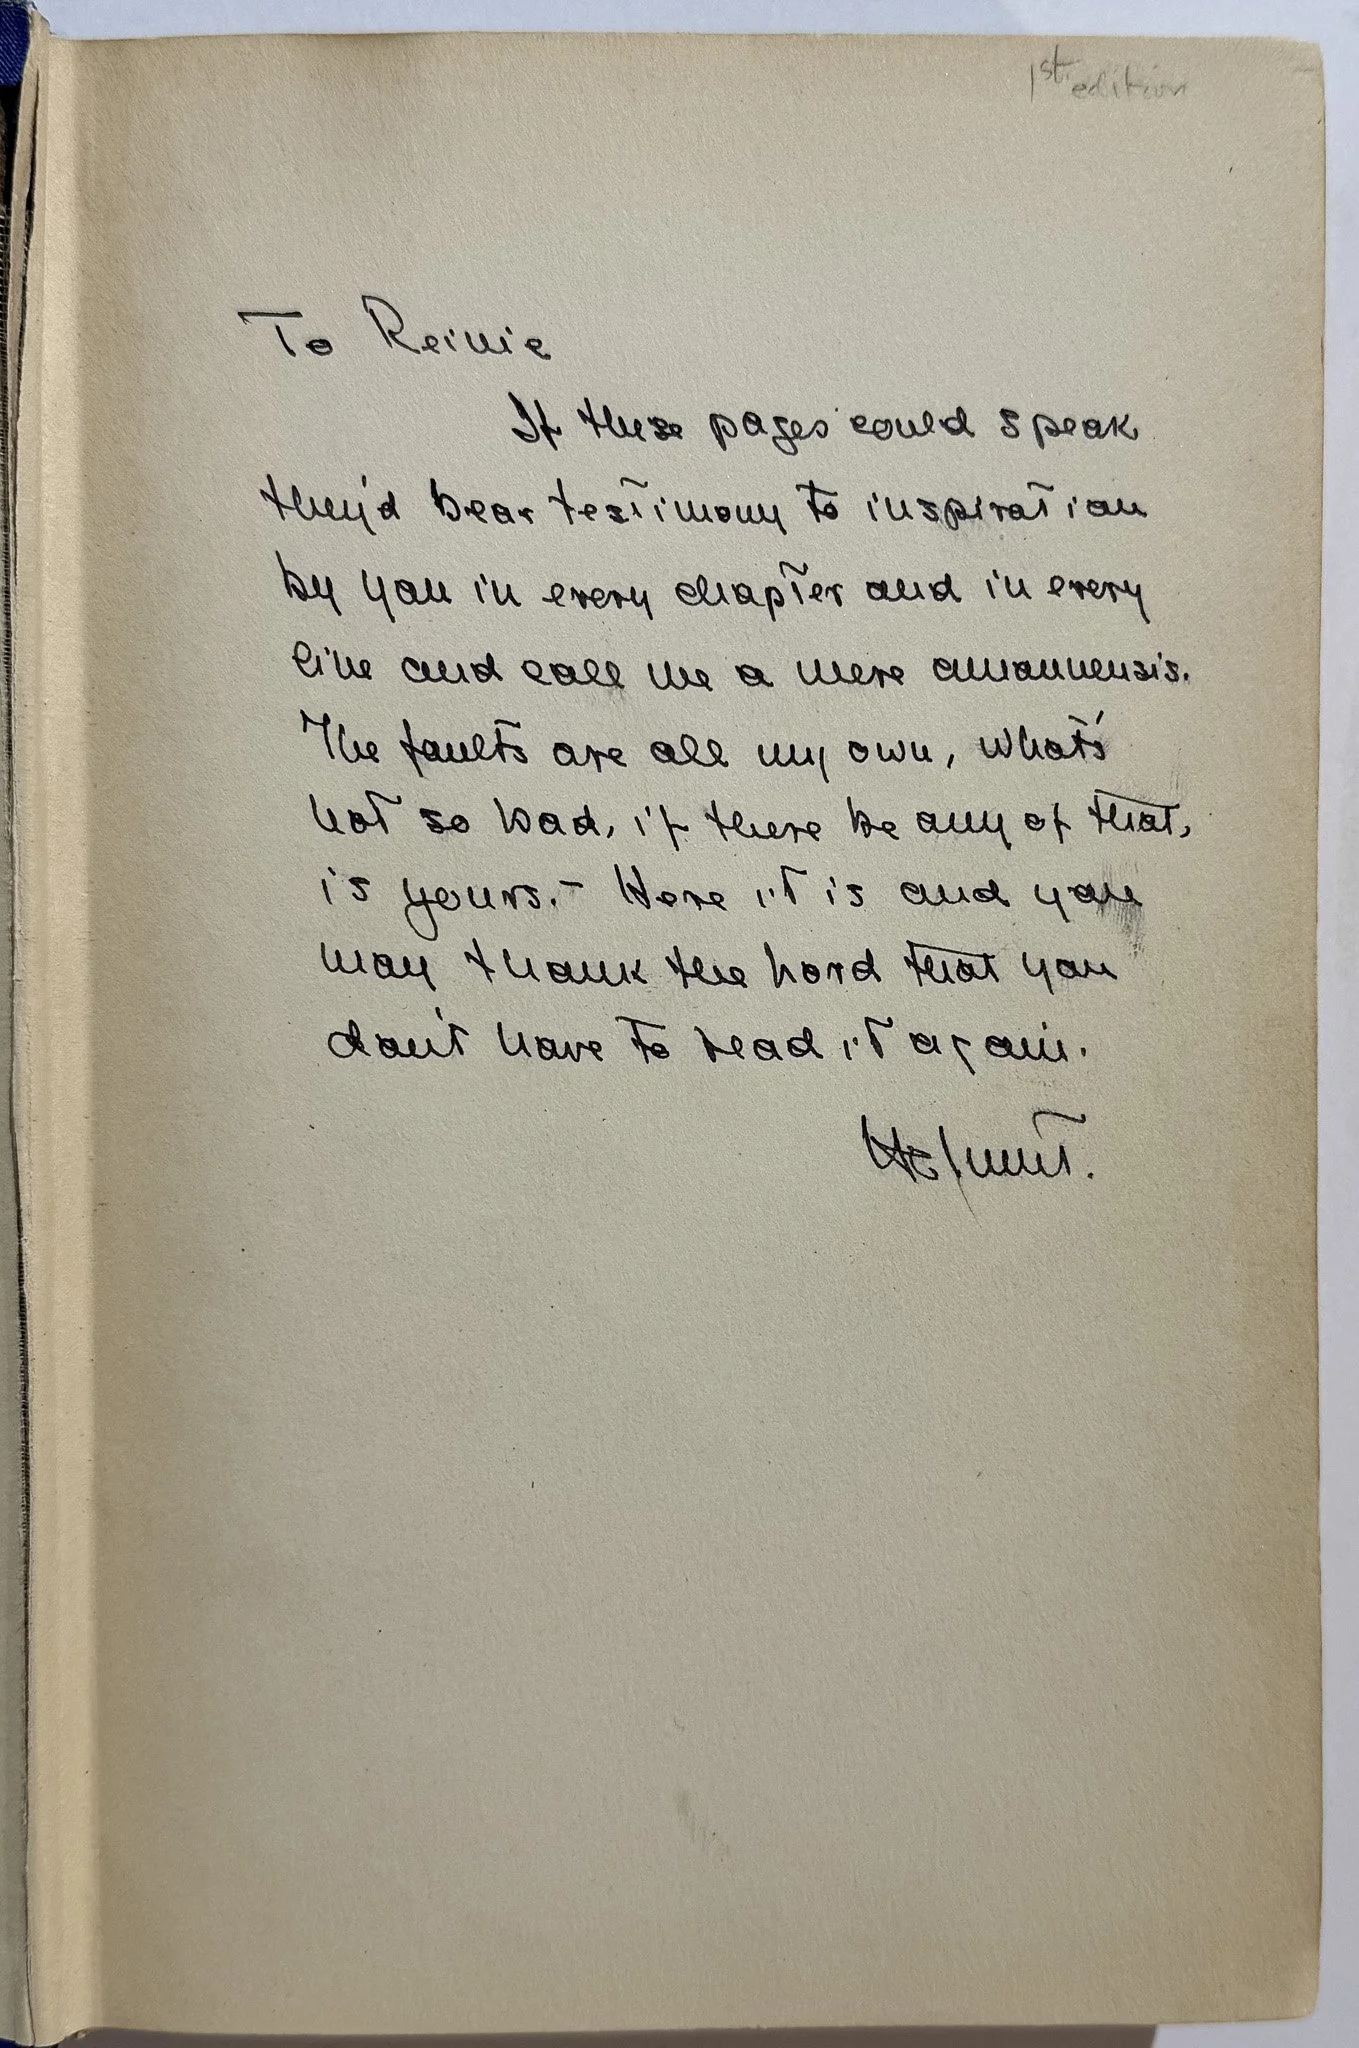 1st edition
To Reinie
If these pages could speak
they'd bear testimony to inspiration
by you in every chapter and in every
line and call me a mere amanuensis.
The faults are all my own, what's
not so bad, if there be any of that,
is yours. - Here it is and you
may thank the Lord that you
don't have to read it again.
Helmut.